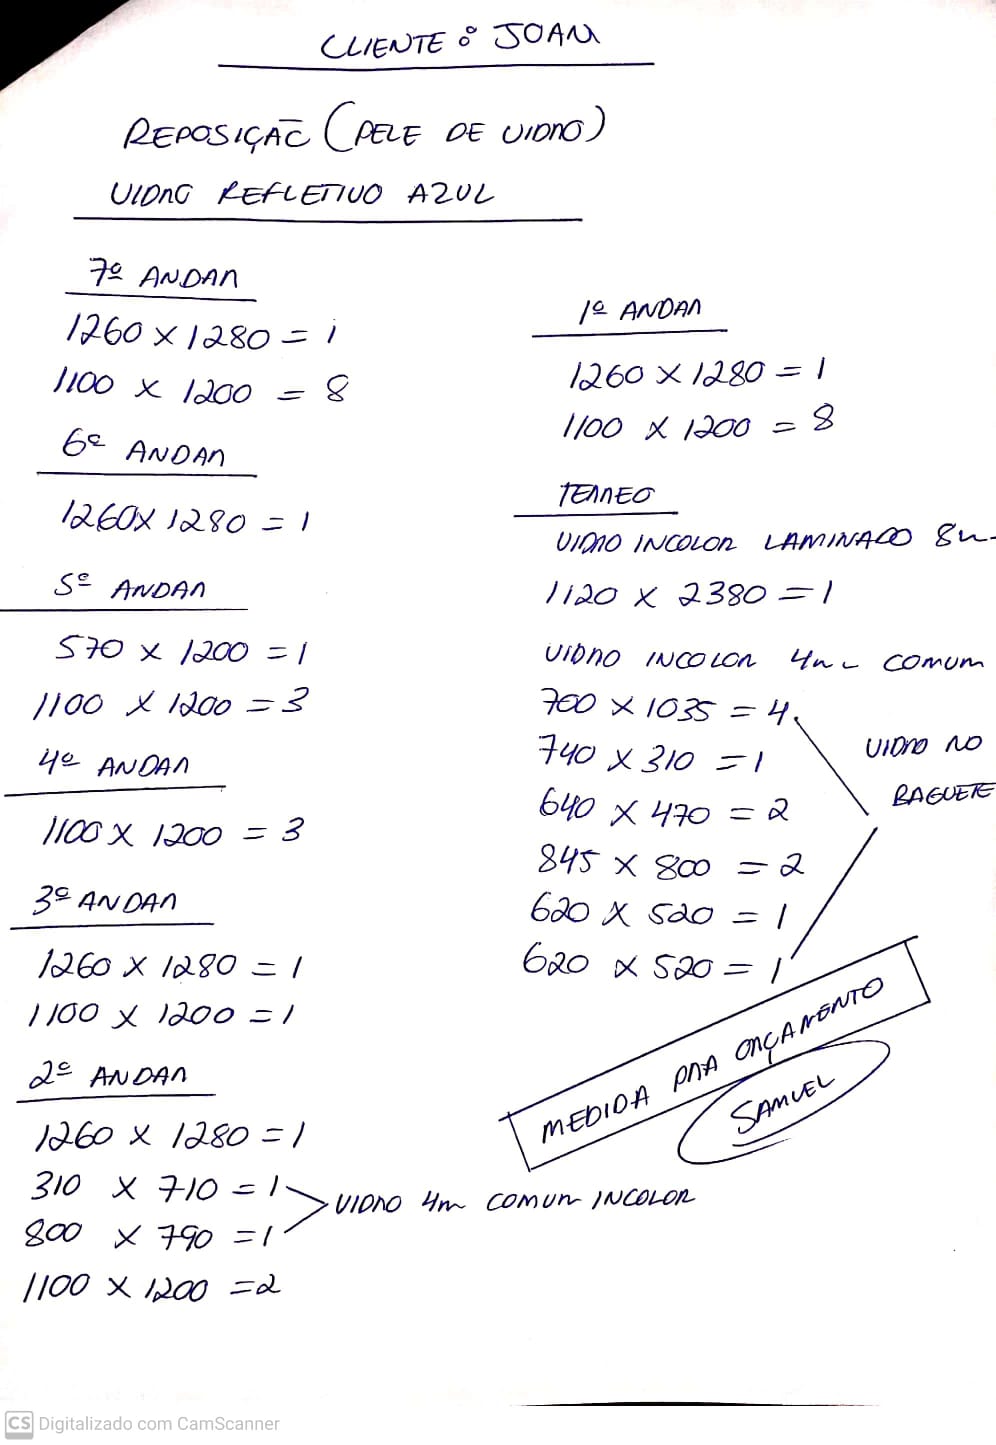 CLIENTE: JOAN
REPOSIÇÃO (PELE DE VIDRO)
VIDRO REFLETIVO AZUL
7º ANDAR
1260 x 1280 = 1
1100 x 1200 = 8
6º ANDAR
1260 x 1280 = 1
5º ANDAR
570 x 1200 = 1
1100 x 1200 = 3
4º ANDAR
1100 x 1200 = 3
3º ANDAR
1260 x 1280 = 1
1100 x 1200 = 1
2º ANDAR
1260 x 1280 = 1
310 x 710 = 1
800 x 790 = 1
VIDRO 4m COMUM INCOLOR
1100 x 1200 = 2
1º ANDAR
1260 x 1280 = 1
1100 x 1200 = 8
TERREO
VIDRO INCOLOR LAMINADO 8m
1120 x 2380 = 1
VIDRO INCOLOR 4m COMUM
700 x 1035 = 4
740 x 310 = 1
640 x 470 = 2
845 x 800 = 2
620 x 520 = 1
620 x 520 = 1
VIDRO NO
BAGUETE
MEDIDA PRA ORÇAMENTO
SAMUEL
CS Digitalizado com CamScanner